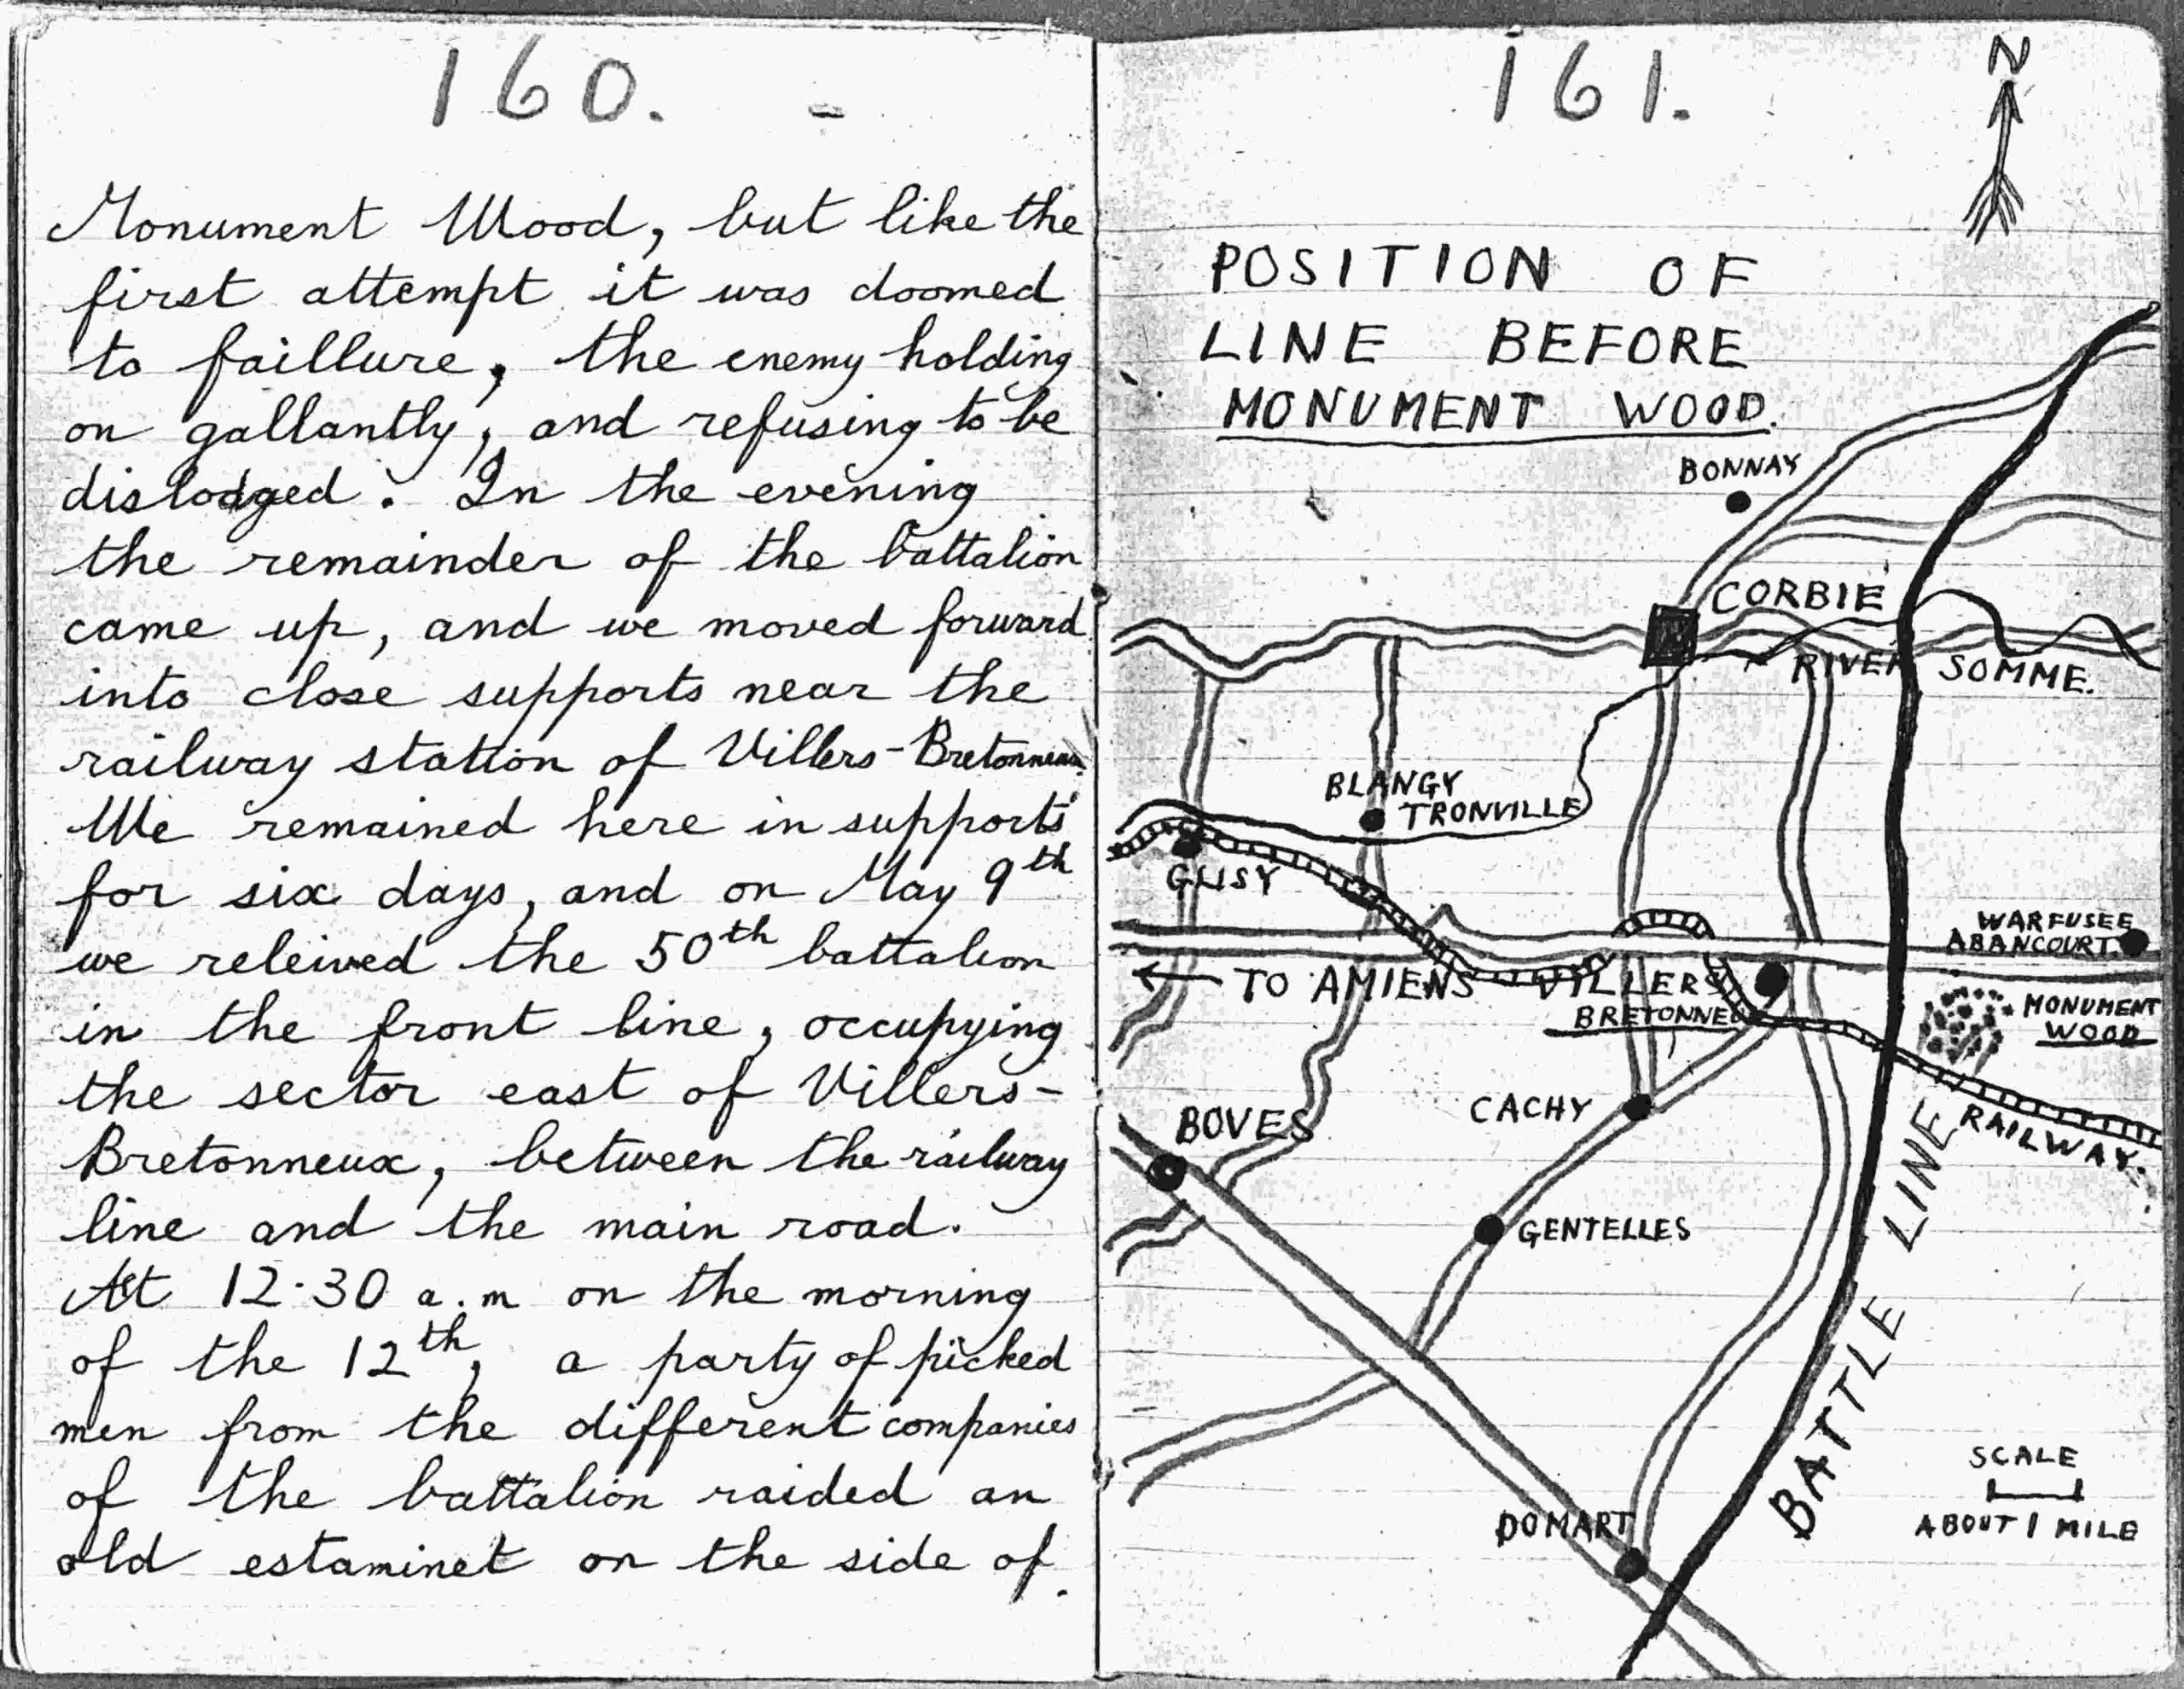 160.
Monument Wood, but like the
first attempt it was doomed
to faillure, the enemy holding
on gallantly, and refusing to be
dislodged. In the evening
the remainder of the battalion
came up, and we moved forward
into close supports near the
railway station of Villers-Bretonneux.
We remained here in supports
for six days, and on May 9th
we releived the 50th battalion
in the front line, occupying
the sector east of Villers-
Bretonneux, between the railway
line and the main road.
At 12.30 a.m on the morning
of the 12th, a party of picked
men from the different companies
of the battalion raided an
old estaminet on the side of
161.
N
POSITION OF
LINE BEFORE
MONUMENT WOOD.
BONNAY
CORBIE
RIVER SOMME.
BLANGY
TRONVILLE
GLISY
WARFUSEE
ABANCOURT.
← TO AMIENS
VILLERS
BRETONNEUX
MONUMENT
WOOD
BOVES
CACHY
RAILWAY.
GENTELLES
BATTLE LINE
SCALE
ABOUT 1 MILE
DOMART